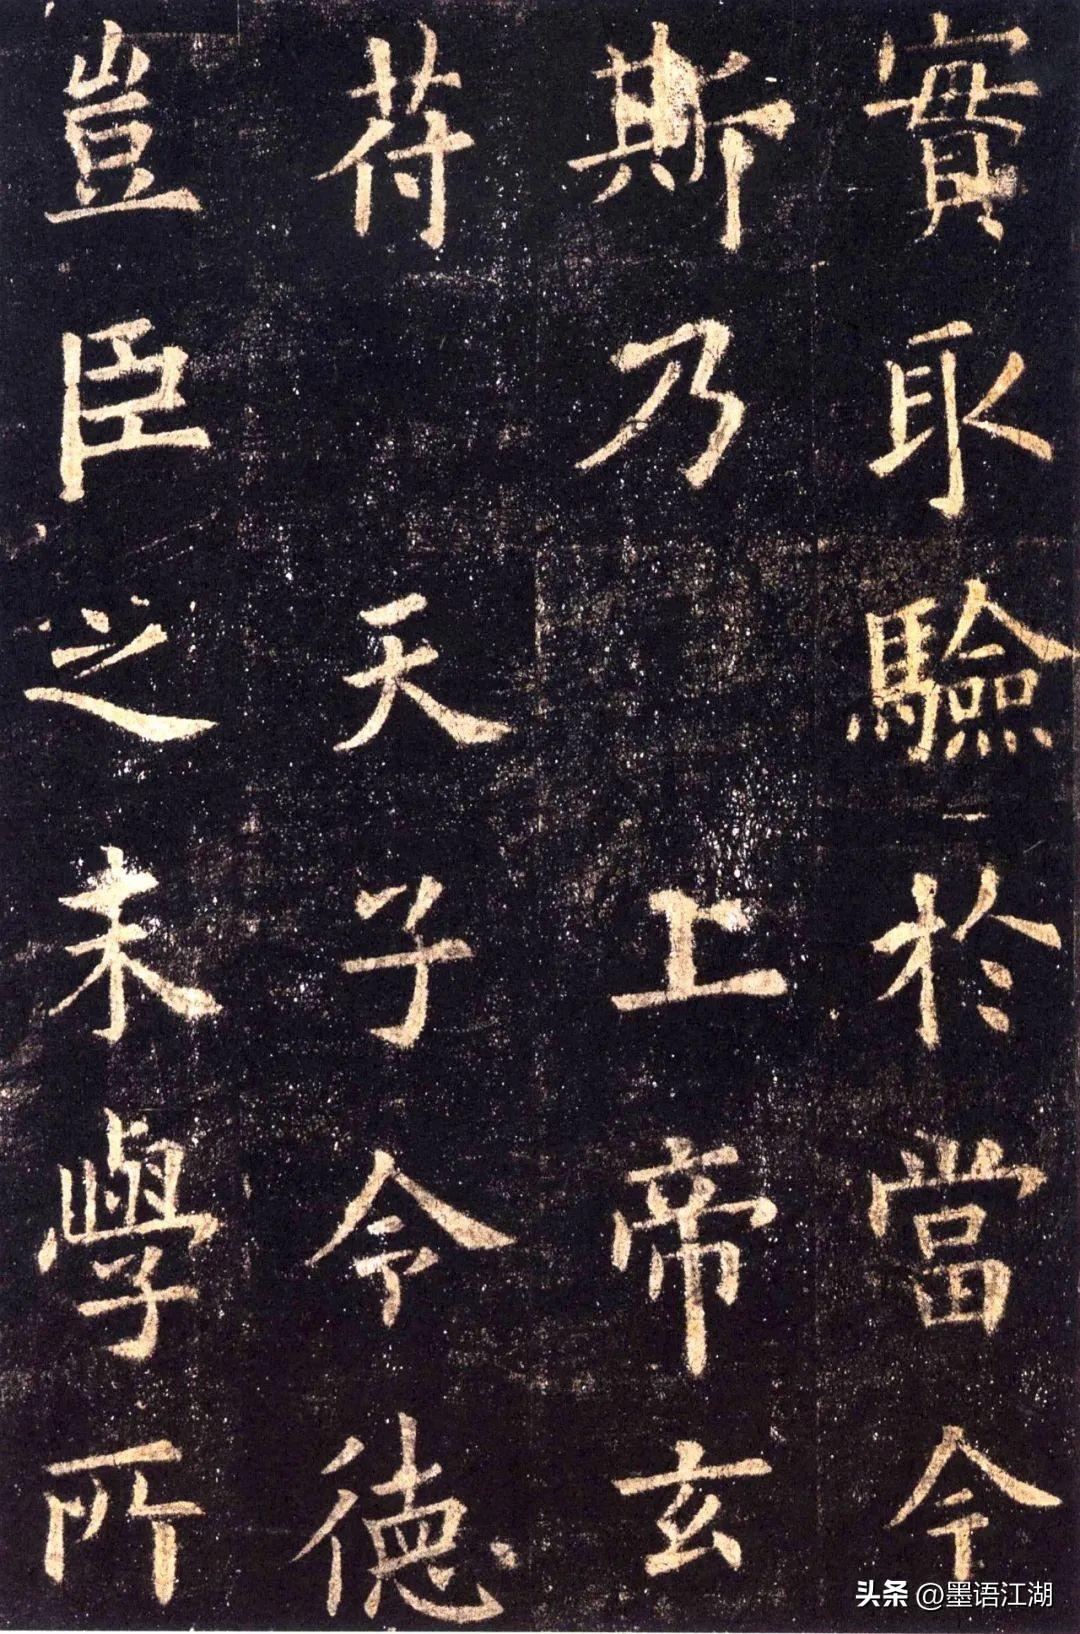 實取驗於當今
斯乃上帝玄
苻天子令德
豈臣之末學所
头条 @墨语江湖